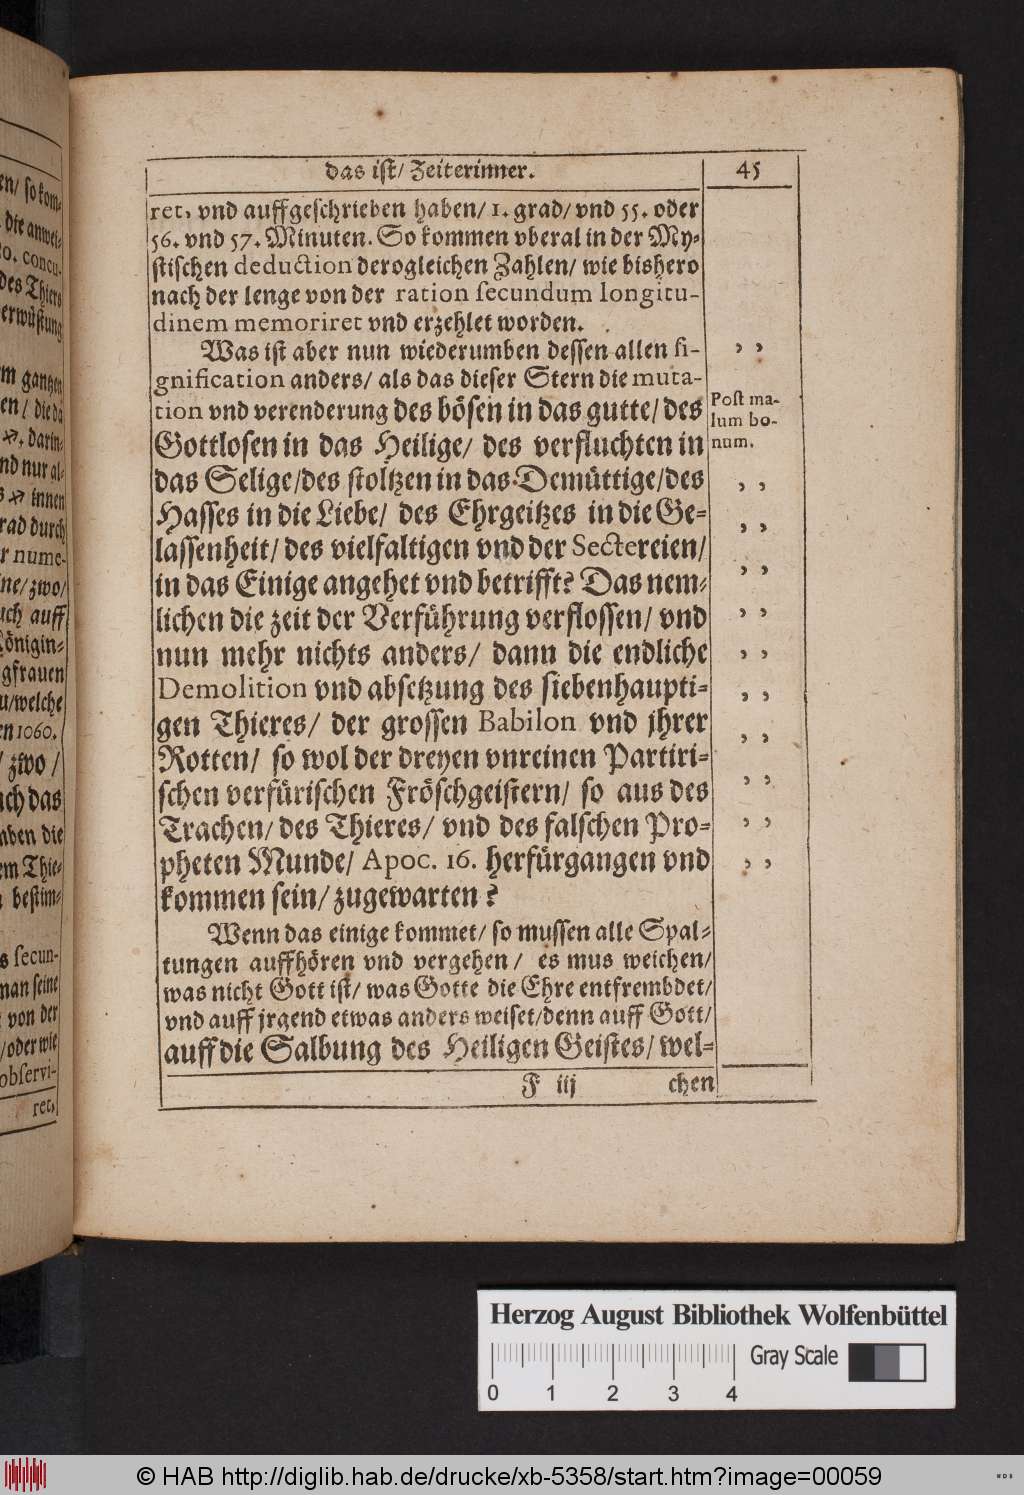 en/ so kom-
die anwei-
o. concu-
des Thiers
erwüstung
m gantzen
en/ die da
darin-
nd nur al-
innen
rad durch
r nume-
ne/ zwo/
uch auff
Königin-
gfrauen
u/welche
en 1060.
/ zwo /
uch das
aben die
em Thie-
bestim-
s secun-
man seine
von der
/oder wie
observi-
ret,
das ist/ Zeiterinner.
45
ret, vnd auffgeschrieben haben/ 1. grad/ vnd 55. oder
56. vnd 57. Minuten. So kommen vberal in der My-
stischen deduction derogleichen Zahlen/ wie bishero
nach der lenge von der ration secundum longitu-
dinem memoriret vnd erzehlet worden.
Was ist aber nun wiederumben dessen allen si-
gnification anders/ als das dieser Stern die muta-
tion vnd verenderung des bösen in das gutte/ des
Gottlosen in das Heilige/ des verfluchten in
das Selige/des stoltzen in das Demüttige/des
Hasses in die Liebe/ des Ehrgeitzes in die Ge-
lassenheit/ des vielfaltigen vnd der Sectereien/
in das Einige angehet vnd betrifft? Das nem-
lichen die zeit der Verführung verflossen/ vnd
nun mehr nichts anders/ dann die endliche
Demolition vnd absetzung des siebenhaupti-
gen Thieres/ der grossen Babilon vnd jhrer
Rotten/ so wol der dreyen vnreinen Partiri-
schen verfürischen Fröschgeistern/ so aus des
Trachen/ des Thieres/ vnd des falschen Pro-
pheten Munde/ Apoc. 16. herfürgangen vnd
kommen sein/ zugewarten?
Wenn das einige kommet/ so mussen alle Spal-
tungen auffhören vnd vergehen/ es mus weichen/
was nicht Gott ist/ was Gotte die Ehre entfrembdet/
vnd auff jrgend etwas anders weiset/denn auff Gott/
auff die Salbung des Heiligen Geistes/ wel-
F iij
chen
, ,
Post ma-
lum bo-
num.
, ,
, ,
, ,
, ,
, ,
, ,
, ,
, ,
, ,
, ,
Herzog August Bibliothek Wolfenbüttel
0 1 2 3 4
Gray Scale
© HAB http://diglib.hab.de/drucke/xb-5358/start.htm?image=00059
WDB